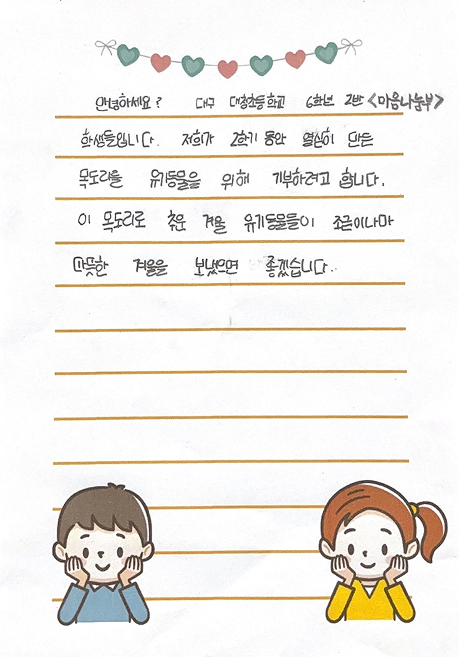 안녕하세요? 대구 대청초등학교 6학년 2반 <마음나눔부>
학생들입니다. 저희가 2학기 동안 열심히 만든
목도리를 유기동물을 위해 기부하려고 합니다.
이 목도리로 추운 겨울 유기동물들이 조금이나마
따뜻한 겨울을 보냈으면 좋겠습니다..